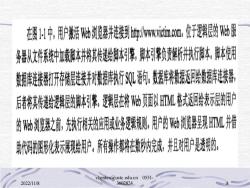 在图 1-1 中，用户激活 Web 浏览器并连接到 http://www.victim.com。位于逻辑层的 Web 服
务器从文件系统中加载脚本并将其传递给脚本引擎，脚本引擎负责解析并执行脚本。脚本使用
数据库连接器打开存储层连接并对数据库执行 SQL 语句。数据库将数据返回给数据库连接器，
后者将其传递给逻辑层的脚本引擎。逻辑层在将 Web 页面以 HTML 格式返回给表示层的用户
的 Web 浏览器之前，先执行相关的应用或业务逻辑规则。用户的 Web 浏览器呈现 HTML 并借
助代码的图形化表示展现给用户。所有操作都将在数秒内完成，并且对用户是透明的。
2022/11/8
0531-